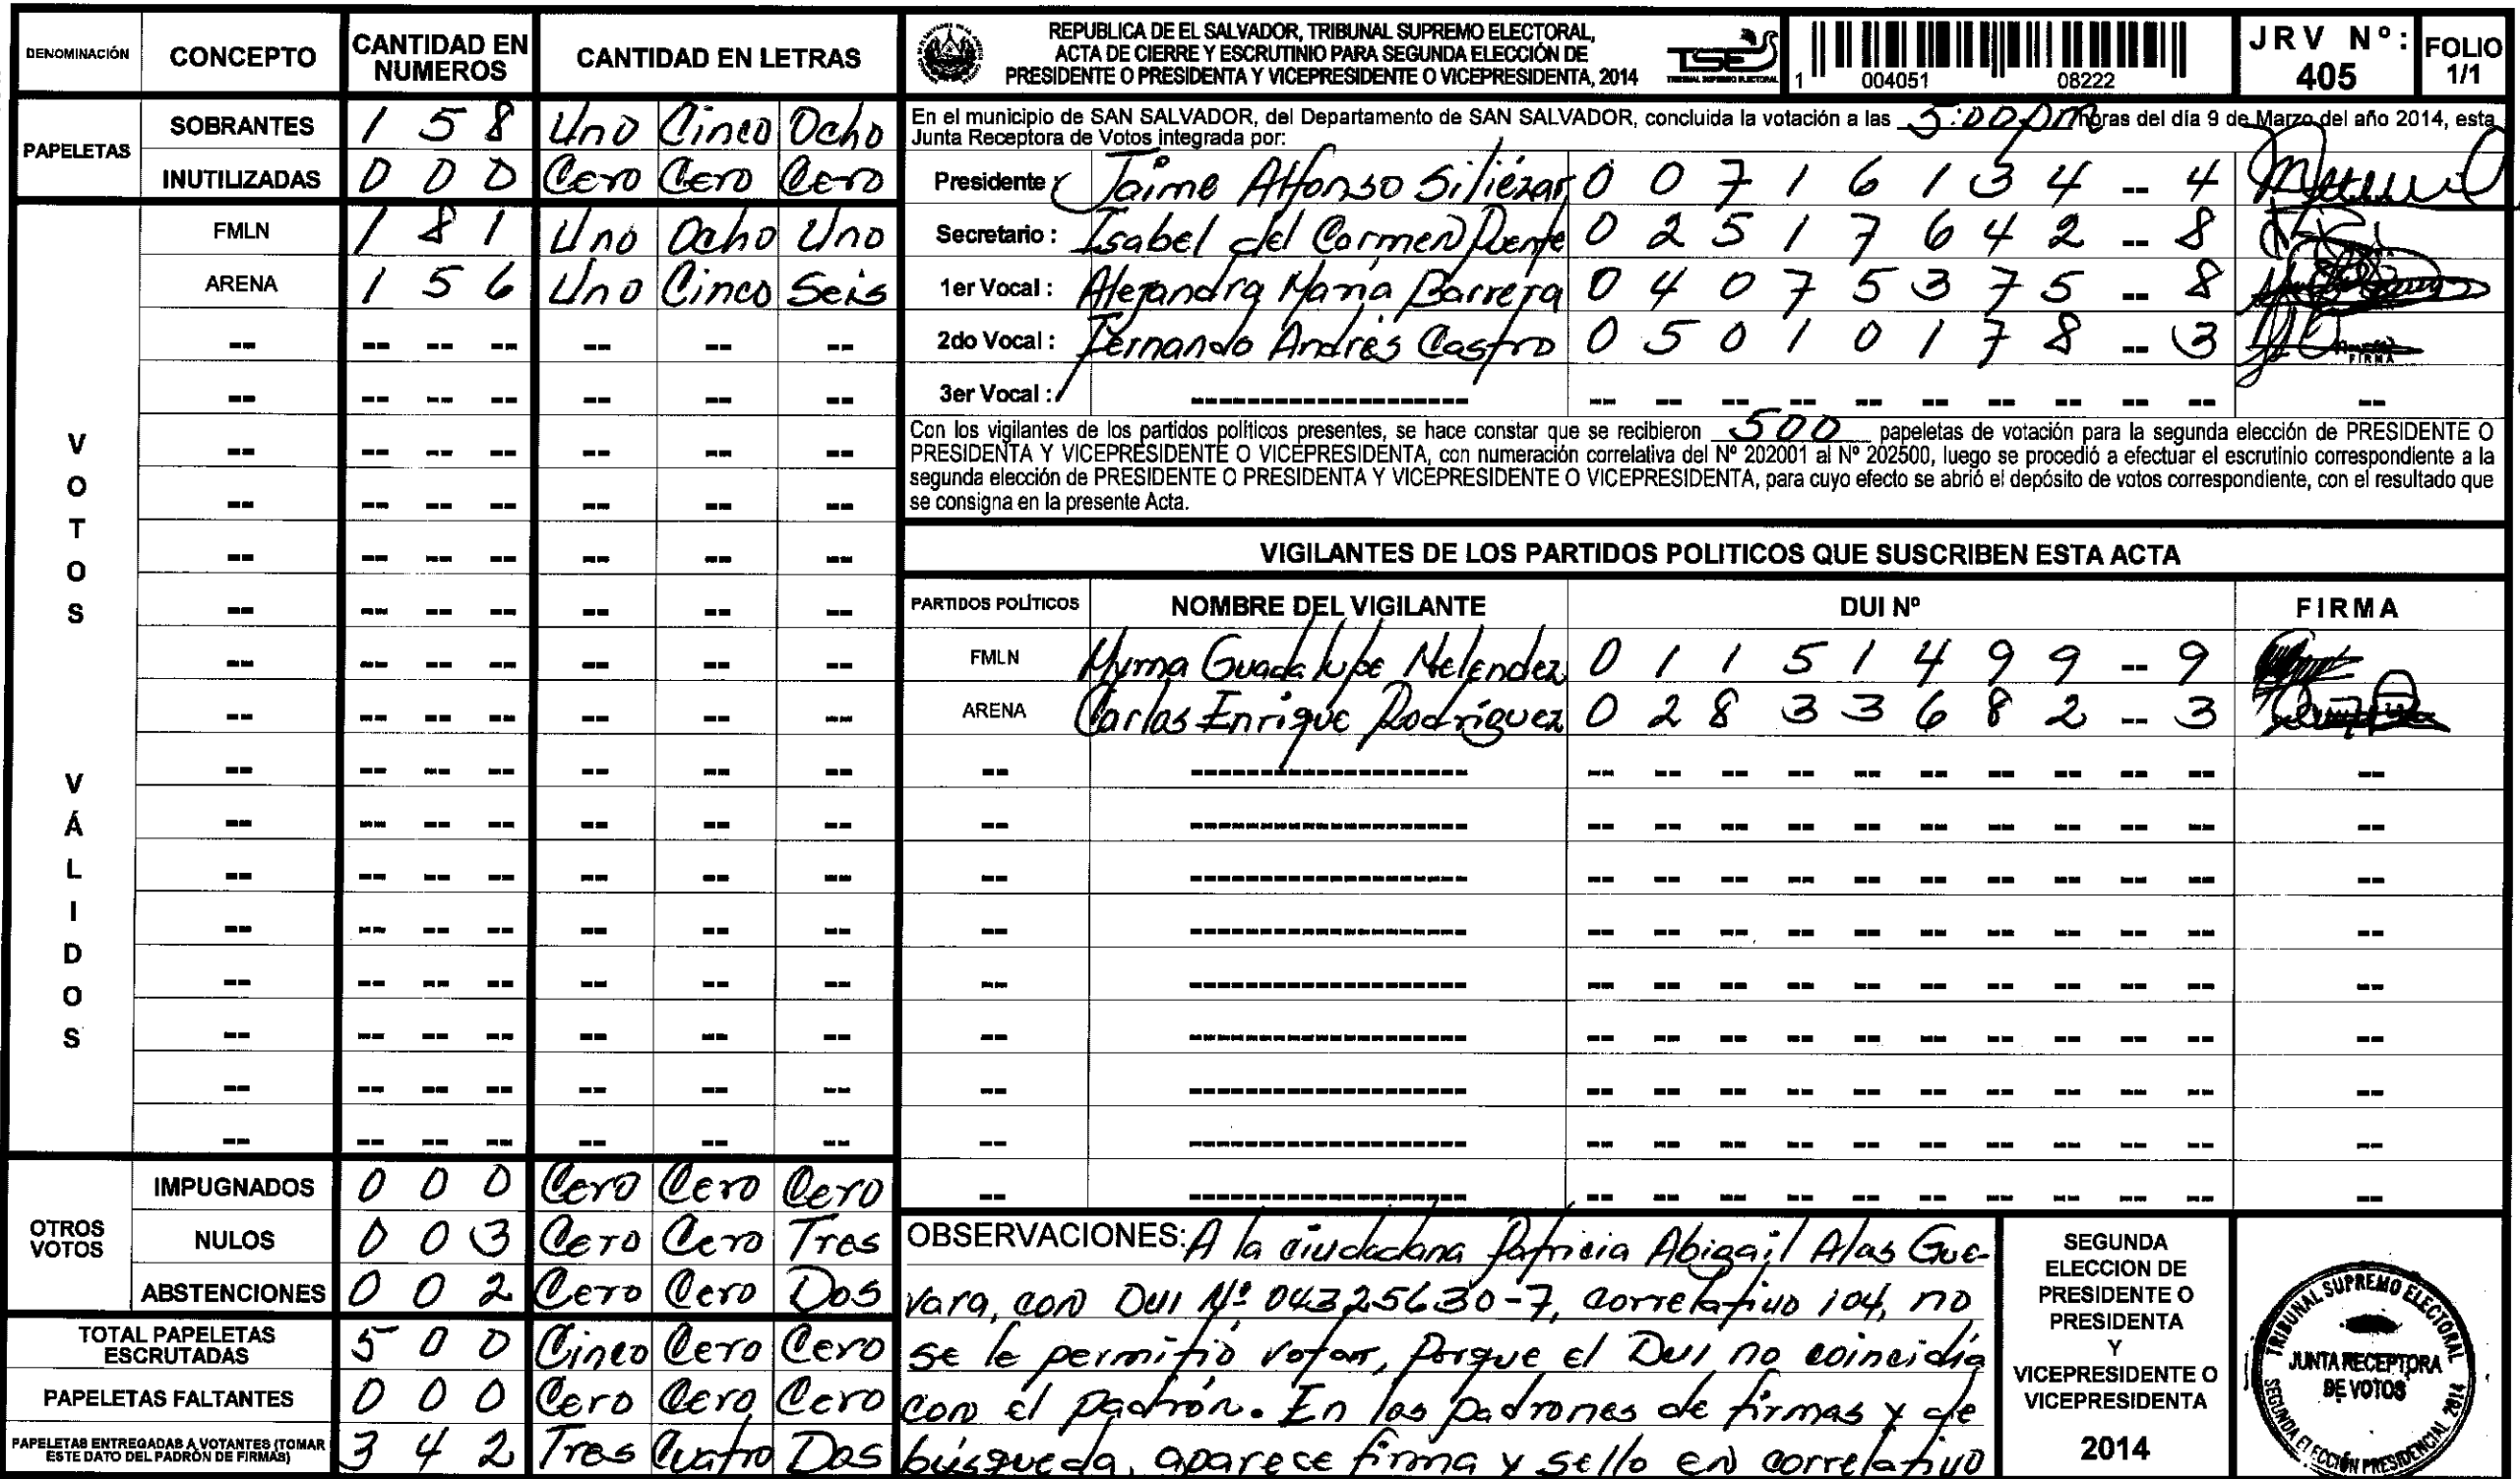 DENOMINACIÓN CONCEPTO CANTIDAD EN NUMEROS CANTIDAD EN LETRAS
PAPELETAS
SOBRANTES 1 5 8 Uno Cinco Ocho
INUTILIZADAS 0 0 0 Cero Cero Cero
VOTOS VÁLIDOS
FMLN 1 8 1 Uno Ocho Uno
ARENA 1 5 6 Uno Cinco Seis
OTROS VOTOS
IMPUGNADOS 0 0 0 Cero Cero Cero
NULOS 0 0 3 Cero Cero Tres
ABSTENCIONES 0 0 2 Cero Cero Dos
TOTAL PAPELETAS ESCRUTADAS 5 0 0 Cinco Cero Cero
PAPELETAS FALTANTES 0 0 0 Cero Cero Cero
PAPELETAS ENTREGADAS A VOTANTES (TOMAR ESTE DATO DEL PADRÓN DE FIRMAS) 3 4 2 Tres Cuatro Dos
REPUBLICA DE EL SALVADOR, TRIBUNAL SUPREMO ELECTORAL,
ACTA DE CIERRE Y ESCRUTINIO PARA SEGUNDA ELECCIÓN DE
PRESIDENTE O PRESIDENTA Y VICEPRESIDENTE O VICEPRESIDENTA, 2014
TSE
TRIBUNAL SUPREMO ELECTORAL
1 004051 08222
JRV Nº: 405
FOLIO 1/1
En el municipio de SAN SALVADOR, del Departamento de SAN SALVADOR, concluida la votación a las 5:00 pm horas del día 9 de Marzo del año 2014, esta
Junta Receptora de Votos integrada por:
Presidente: Jaime Alfonso Siliézar 0 0 7 1 6 1 3 4 -- 4
Secretario: Isabel del Carmen Puente 0 2 5 1 7 6 4 2 -- 8
1er Vocal: Alejandra María Barrera 0 4 0 7 5 3 7 5 -- 8
2do Vocal: Fernando Andrés Castro 0 5 0 1 0 1 7 8 -- 3
FIRMA
3er Vocal:
Con los vigilantes de los partidos políticos presentes, se hace constar que se recibieron 500 papeletas de votación para la segunda elección de PRESIDENTE O
PRESIDENTA Y VICEPRESIDENTE O VICEPRESIDENTA, con numeración correlativa del Nº 202001 al Nº 202500, luego se procedió a efectuar el escrutinio correspondiente a la
segunda elección de PRESIDENTE O PRESIDENTA Y VICEPRESIDENTE O VICEPRESIDENTA, para cuyo efecto se abrió el depósito de votos correspondiente, con el resultado que
se consigna en la presente Acta.
VIGILANTES DE LOS PARTIDOS POLITICOS QUE SUSCRIBEN ESTA ACTA
PARTIDOS POLÍTICOS NOMBRE DEL VIGILANTE DUI Nº FIRMA
FMLN Myrna Guadalupe Melendez 0 1 1 5 1 4 9 9 -- 9
ARENA Carlos Enrique Rodríguez 0 2 8 3 3 6 8 2 -- 3
OBSERVACIONES: A la ciudadana Patricia Abigail Alas Gue-
vara, con DUI Nº 04325630-7, correlativo 104, no
se le permitió votar, porque el Dui no coincidía
con el padrón. En los padrones de firmas y de
búsqueda, aparece firma y sello en correlativo
SEGUNDA
ELECCION DE
PRESIDENTE O
PRESIDENTA
Y
VICEPRESIDENTE O
VICEPRESIDENTA
2014
TRIBUNAL SUPREMO ELECTORAL
JUNTA RECEPTORA
DE VOTOS
SEGUNDA ELECCIÓN PRESIDENCIAL 2014